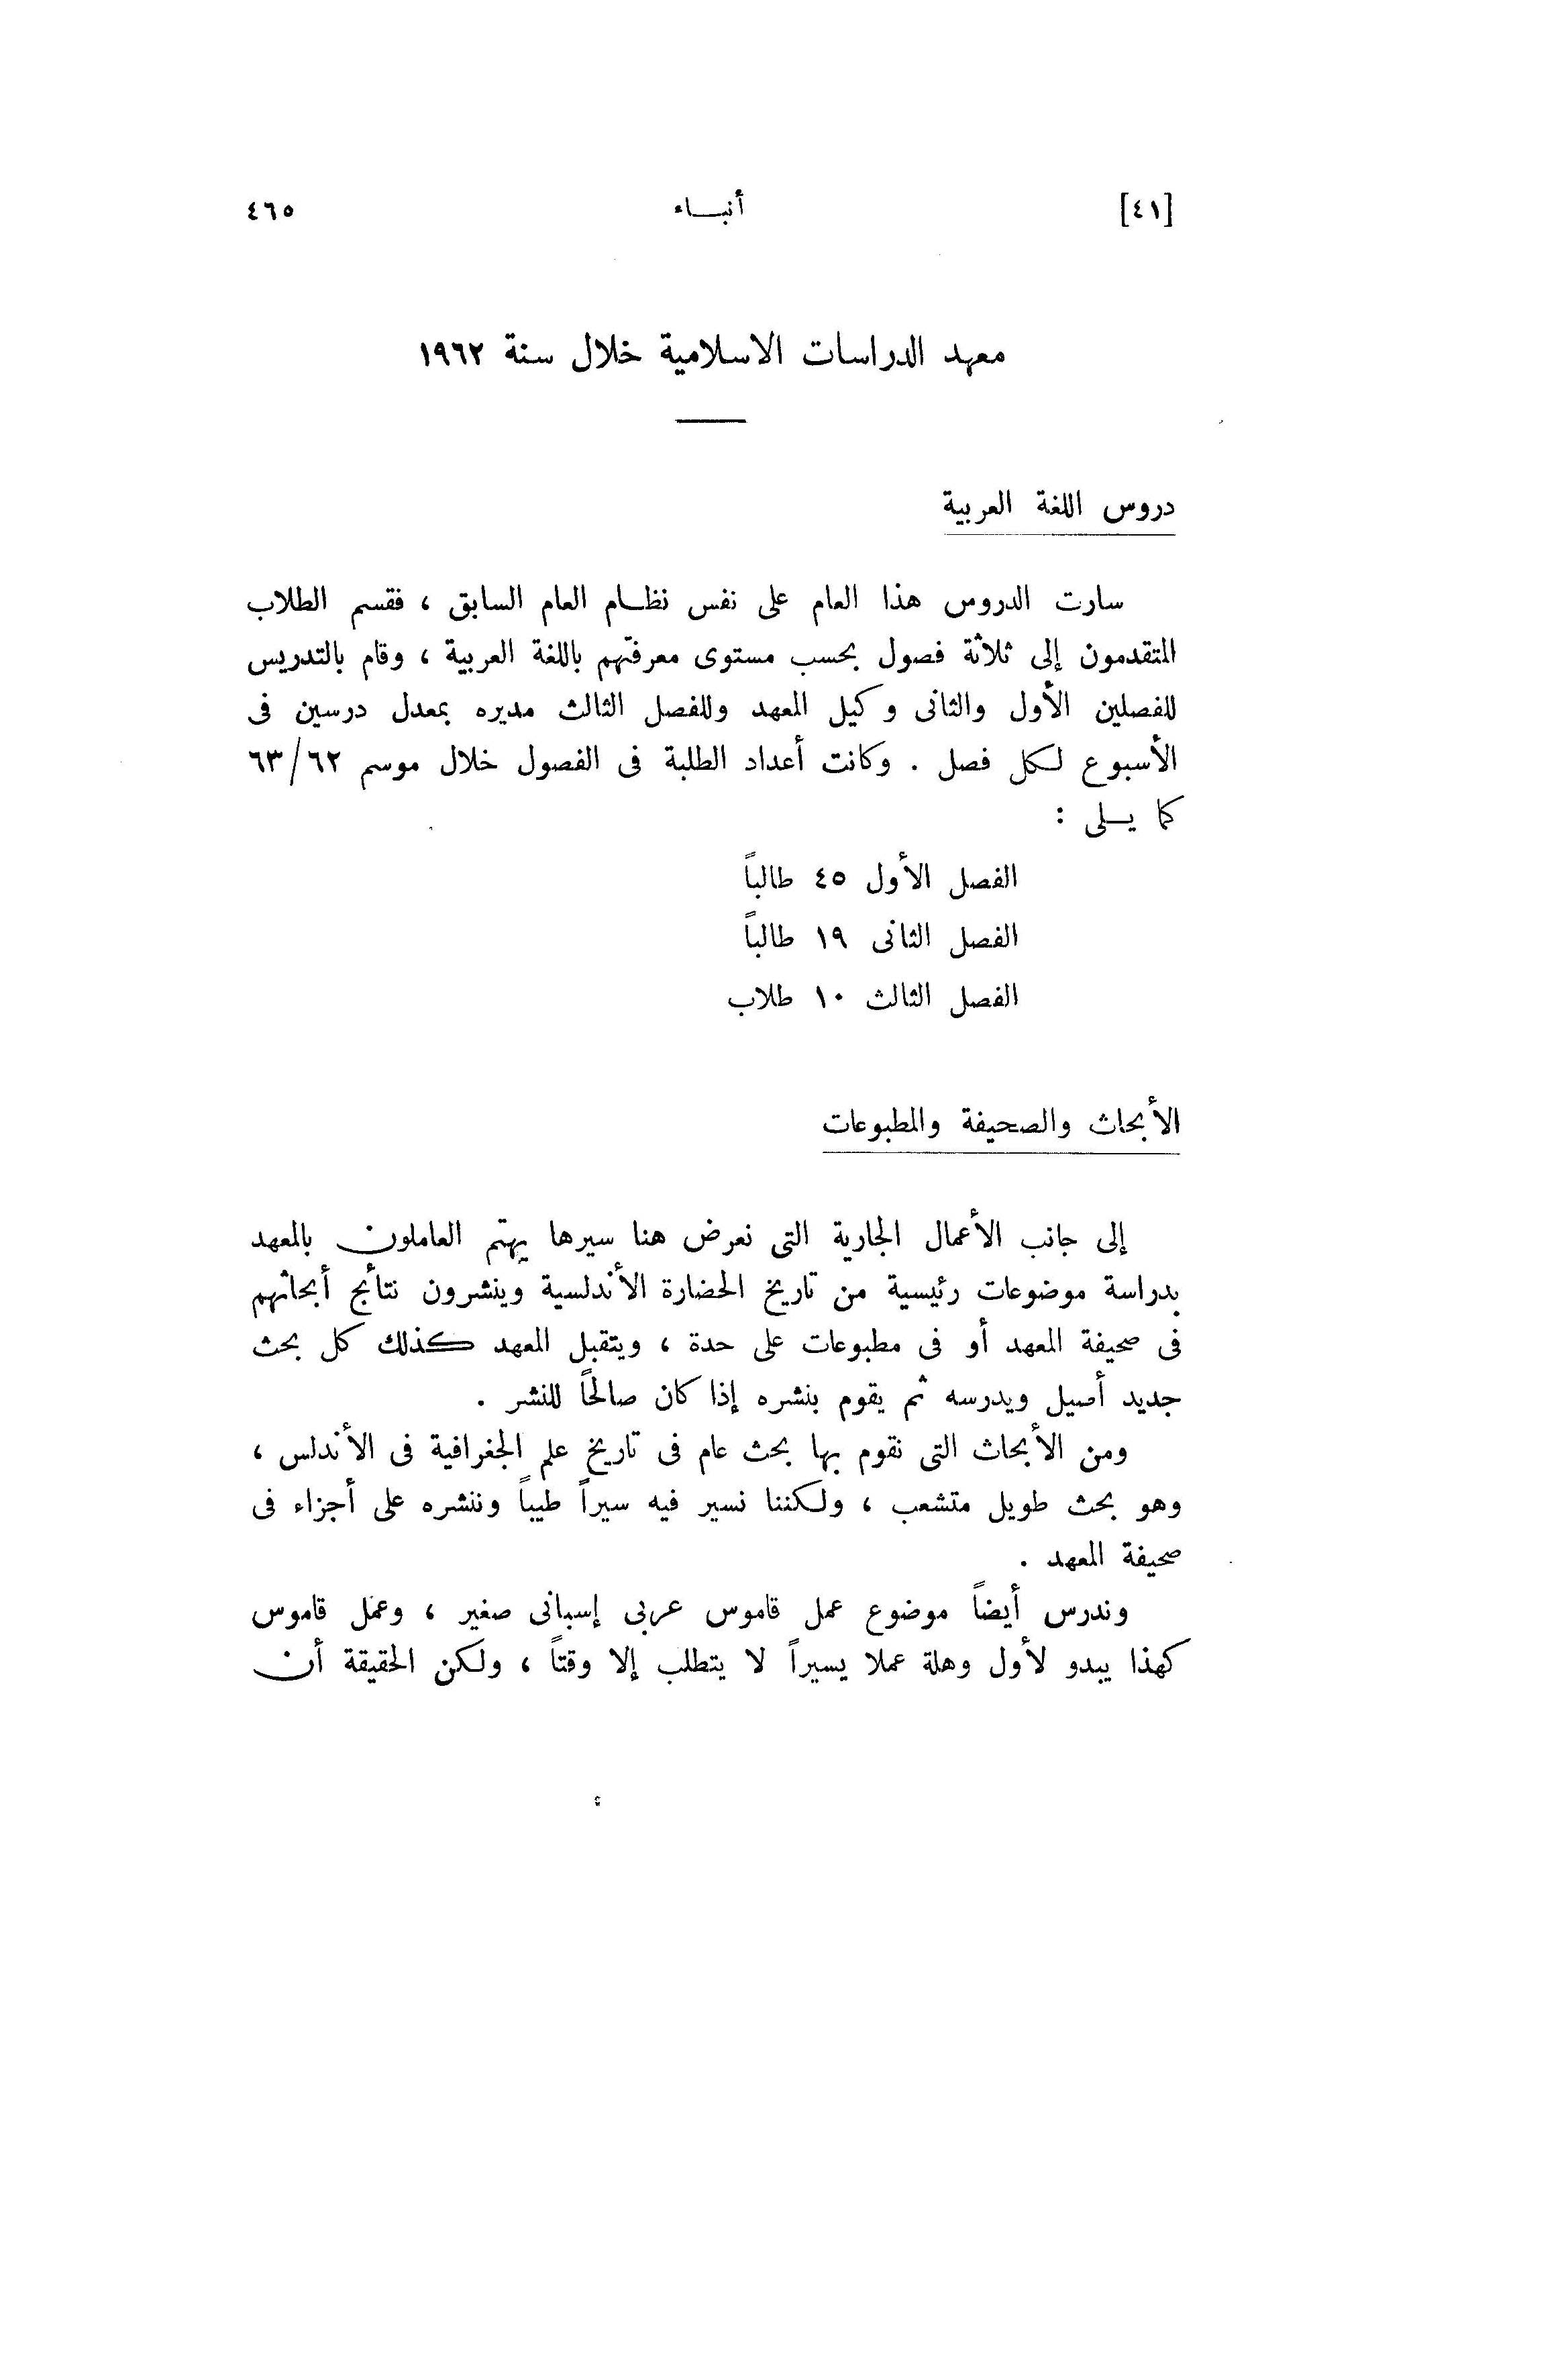 [٤١] أنبــاء ٤٦٥
معهد الدراسات الاسلامية خلال سنة ١٩٦٢
دروس اللغة العربية
سارت الدروس هذا العام على نفس نظــام العام السابق ، فقسم الطلاب
المتقدمون إلى ثلاثة فصول بحسب مستوى معرفتهم باللغة العربية ، وقام بالتدريس
للفصلين الأول والثانى وكيل المعهد وللفصل الثالث مديره بمعدل درسين فى
الأسبوع لـكل فصل . وكانت أعداد الطلبة فى الفصول خلال موسم ٦٣/٦٢
كما يــلى :
الفصل الأول ٤٥ طالباً
الفصل الثانى ١٩ طالباً
الفصل الثالث ١٠ طلاب
الأبحاث والصحيفة والمطبوعات
إلى جانب الأعمال الجارية التى نعرض هنا سيرها يهتم العاملون بالمعهد
بدراسة موضوعات رئيسية من تاريخ الحضارة الأندلسية وينشرون نتائج أبحاثهم
فى صحيفة المعهد أو فى مطبوعات على حدة ، ويتقبل المعهد كذلك كل بحث
جديد أصيل ويدرسه ثم يقوم بنشره إذا كان صالحاً للنشر .
ومن الأبحاث التى نقوم بها بحث عام فى تاريخ علم الجغرافية فى الأندلس ،
وهو بحث طويل متشعب ، ولـكننا نسير فيه سيراً طيباً وننشره على أجزاء فى
صحيفة المعهد .
وندرس أيضاً موضوع عمل قاموس عربى إسبانى صغير ، وعمل قاموس
كهذا يبدو لأول وهلة عملا يسيراً لا يتطلب إلا وقتاً ، ولـكن الحقيقة أن